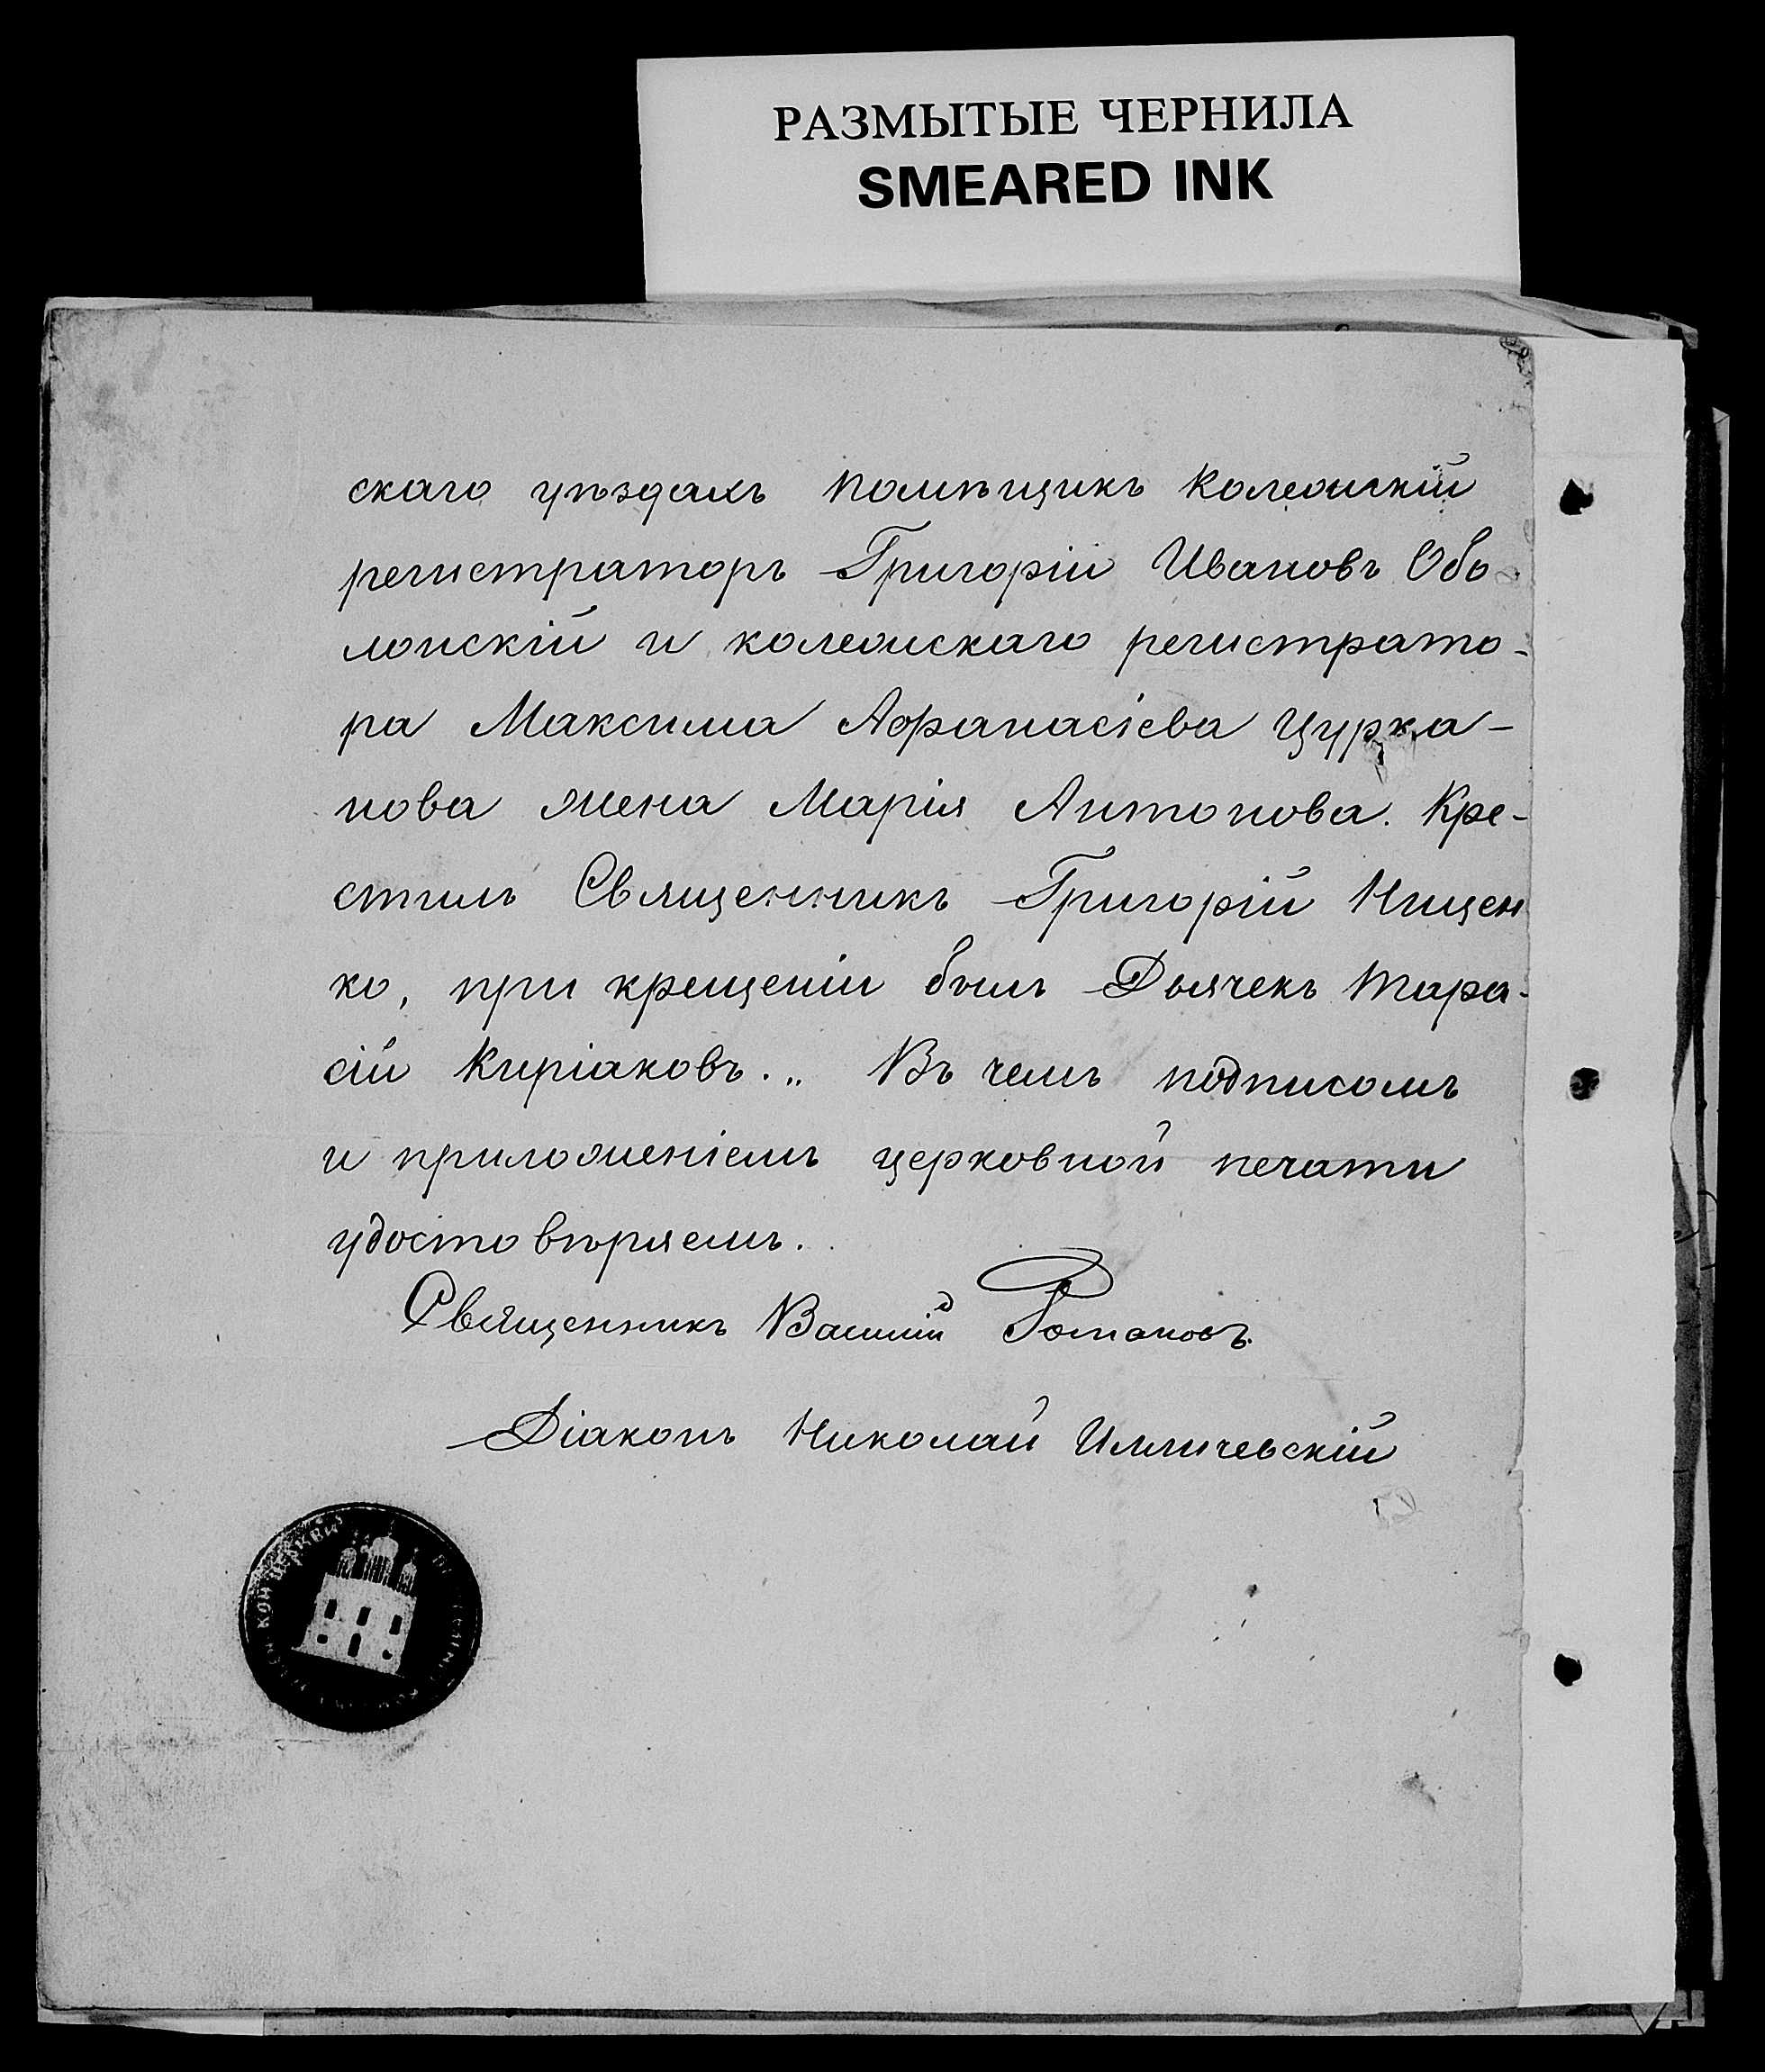 РАЗМЫТЫЕ ЧЕРНИЛА
SMEARED INK
скаго уѣздахъ помѣщикъ колежскій
регистраторъ Григорій Ивановъ Обо
лонскій и колежскаго регистрато-
ра Максима Афанасіева Цурка-
нова жена Марія Антонова. Кре-
стилъ Священникъ Григорій Нищен
ко, при крещеніи былъ Дьячекъ Тара-
сій Киріаковъ. „ Въ чемъ подписомъ
и приложеніемъ церковной печати
удостовѣряемъ.
Священникъ Василій Романовъ.
Діаконъ Николай Илличевскій
КОЙ ЦЕРКВИ